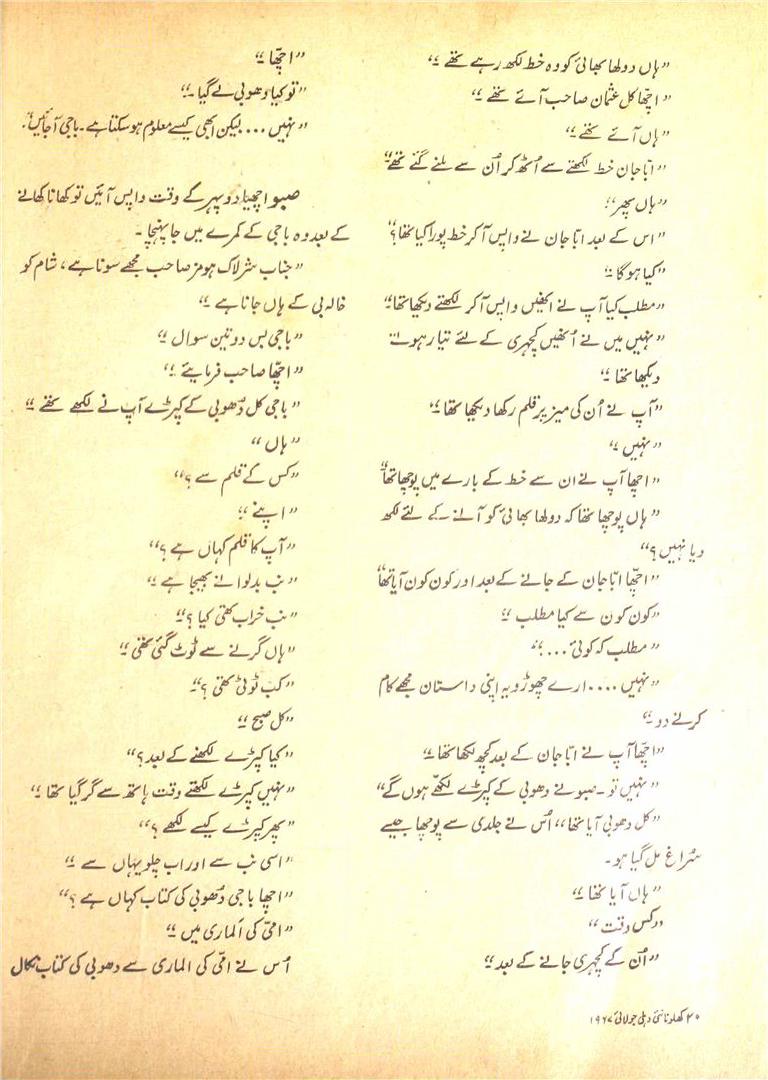 ”ہاں دولھا بھائی کو وہ خط لکھ رہے تھے ۔“
”اچھا کل عثمان صاحب آئے تھے ۔“
”ہاں آئے تھے ۔“
”ابا جان خط لکھتے سے اُٹھ کر اُن سے ملنے گئے تھے“
”ہاں پھر“؛
”اس کے بعد ابا جان نے واپس آکر خط پورا کیا تھا؟“
”کیا ہوگا ۔“
”مطلب کیا آپ نے انھیں واپس آکر لکھتے دیکھا تھا“
”نہیں میں نے اُنھیں کچہری کے لئے تیار ہوتے
دیکھا تھا ۔“
”آپ نے اُن کی میز پر قلم رکھا دیکھا تھا ۔“
”نہیں ۔“
”اچھا آپ نے ان سے خط کے بارے میں پوچھا تھا“
”ہاں پوچھا تھا کہ دولھا بھائی کو آنے کے لئے لکھ
دیا نہیں ؟“
”اچھا ابا جان کے جانے کے بعد اور کون کون آیا تھا“
”کون کون سے کیا مطلب ۔“
”مطلب کہ کوئی ... ۔“
”نہیں .... ارے چھوڑو یہ اپنی داستان مجھے کام
کرنے دو ۔“
”اچھا آپ نے ابا جان کے بعد کچھ لکھا تھا ۔“
”نہیں تو ۔ صبو نے دھوبی کے کپڑے لکھے ہوں گے“
”کل دھوبی آیا تھا“ اُس نے جلدی سے پوچھا جیسے
سُراغ مل گیا ہو ۔
”ہاں آیا تھا ۔“
”کس وقت“
”اُن کے کچہری جانے کے بعد ۔“
”اچھا ۔“
”تو کیا دھوبی لے گیا ۔“
”نہیں ... لیکن ابھی کیسے معلوم ہو سکتا ہے ۔ باجی آجائیں“.
صبو اچھیا دوپہر کے وقت واپس آئیں تو کھانا کھانے
کے بعد وہ باجی کے کمرے میں جا پہنچا ۔
”جناب شرلاک ہومز صاحب مجھے سونا ہے ، شام کو
خالہ بی کے ہاں جانا ہے ۔“
”باجی بس دو تین سوال ۔“
”اچھا صاحب فرمایئے ۔“
”باجی کل دُھوبی کے کپڑے آپ نے لکھے تھے ۔“
”ہاں“
”کس کے قلم سے ؟“
”اپنے ۔“
”آپ کا قلم کہاں ہے ؟“
”نب بدلوانے بھیجا ہے ۔“
”نب خراب تھی کیا ؟“
”ہاں گرنے سے ٹوٹ گئی تھی ۔“
”کب ٹوٹی تھی ؟“
”کل صبح ۔“
”کیا کپڑے لکھنے کے بعد ؟“
”نہیں کپڑے لکھتے وقت ہاتھ سے گر گیا تھا ۔“
”پھر کپڑے کیسے لکھے ؟“
”اسی نب سے اور اب چلو یہاں سے ۔“
”اچھا باجی دُھوبی کی کتاب کہاں ہے ؟“
”امّی کی الماری میں ۔“
اُس نے امّی کی الماری سے دھوبی کی کتاب نکال
۲۰ کھلونا نئی دہلی جولائی ۱۹۶۷